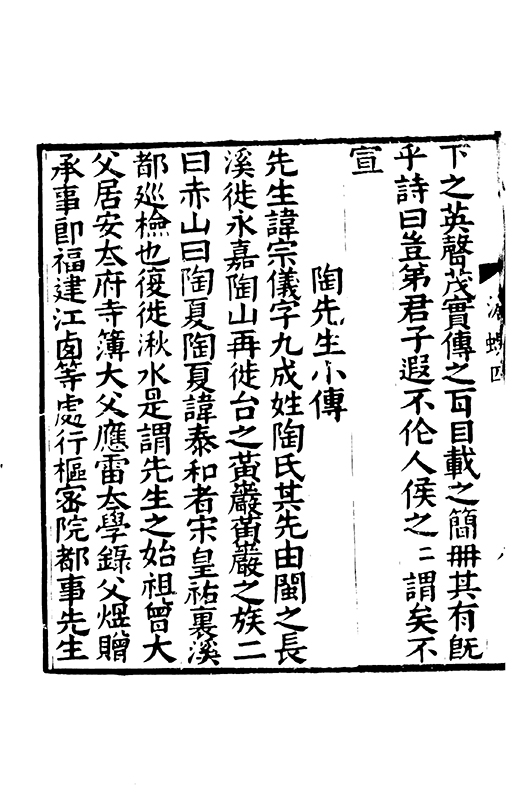 下之英聲茂實傳之耳目載之簡冊其有既
乎詩曰豈第君子遐不伦人侯之二謂矣不
宣
陶先生小傳
先生諱宗儀字九成姓陶氏其先由閩之長
溪徙永嘉陶山再徙台之黃巖黃巖之族二
曰赤山曰陶夏陶夏諱泰和者宋皇祐裏溪
都廵檢也後徙湫水是謂先生之始祖曾大
父居安太府寺簿大父應雷太學錄父煜贈
承事郎福建江卤等處行樞密院都事先生